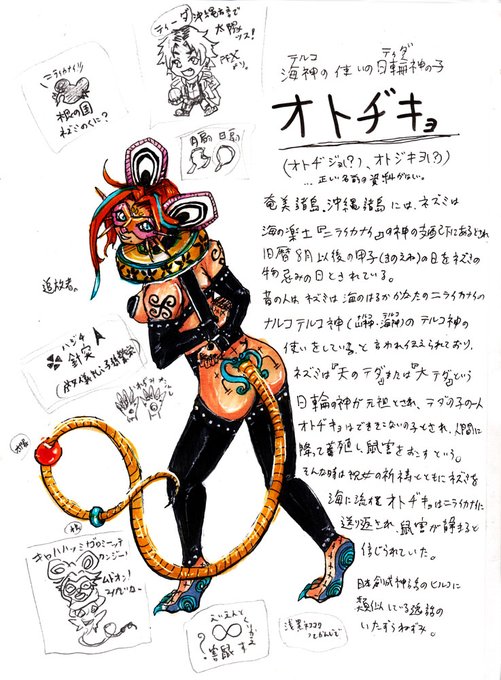 テルコ ティダ
海神の使いの日輪神の子
オトヂキョ
(オトヂジョ(?)、オトジキヨ(?))
…正しい名前の資料がない。
奄美諸島、沖縄諸島には、ネズミは
海の楽土『ニライカナイ』の神の支配下にあるとされ
旧暦8月以後の甲子(きのえね)の日をネズミの
物忌みの日とされている。
昔の人は、ネズミは海のはるかかなたのニライカナイの
ナルコテルコ神(山神・海神)のテルコ神の
使いをしている、と言われ伝えられており、
ネズミは『天のテダ』または『大テダ』という
日輪の神が元祖とされ、テダの子の一人
オトヂキョはできそこないの子とされ、人間に
降って蕃殖し鼠害をおこすという。
そんな時は祝女の祈祷とともにネズミを
海に流儀 オトヂキョはニライカナイに
送り返され、鼠害が静まると
信じられていた。
日本創成神話のヒルコに
類似している逸話の
いたずらねずみ。
ニライカナイ
根の国
ネズミのくに?
ティーダ
沖縄方言で
太陽ッス!
月扇 日扇
追放者。
ハジチ
針突
キャハハッ
ムゲオン!
∞
害獣
?